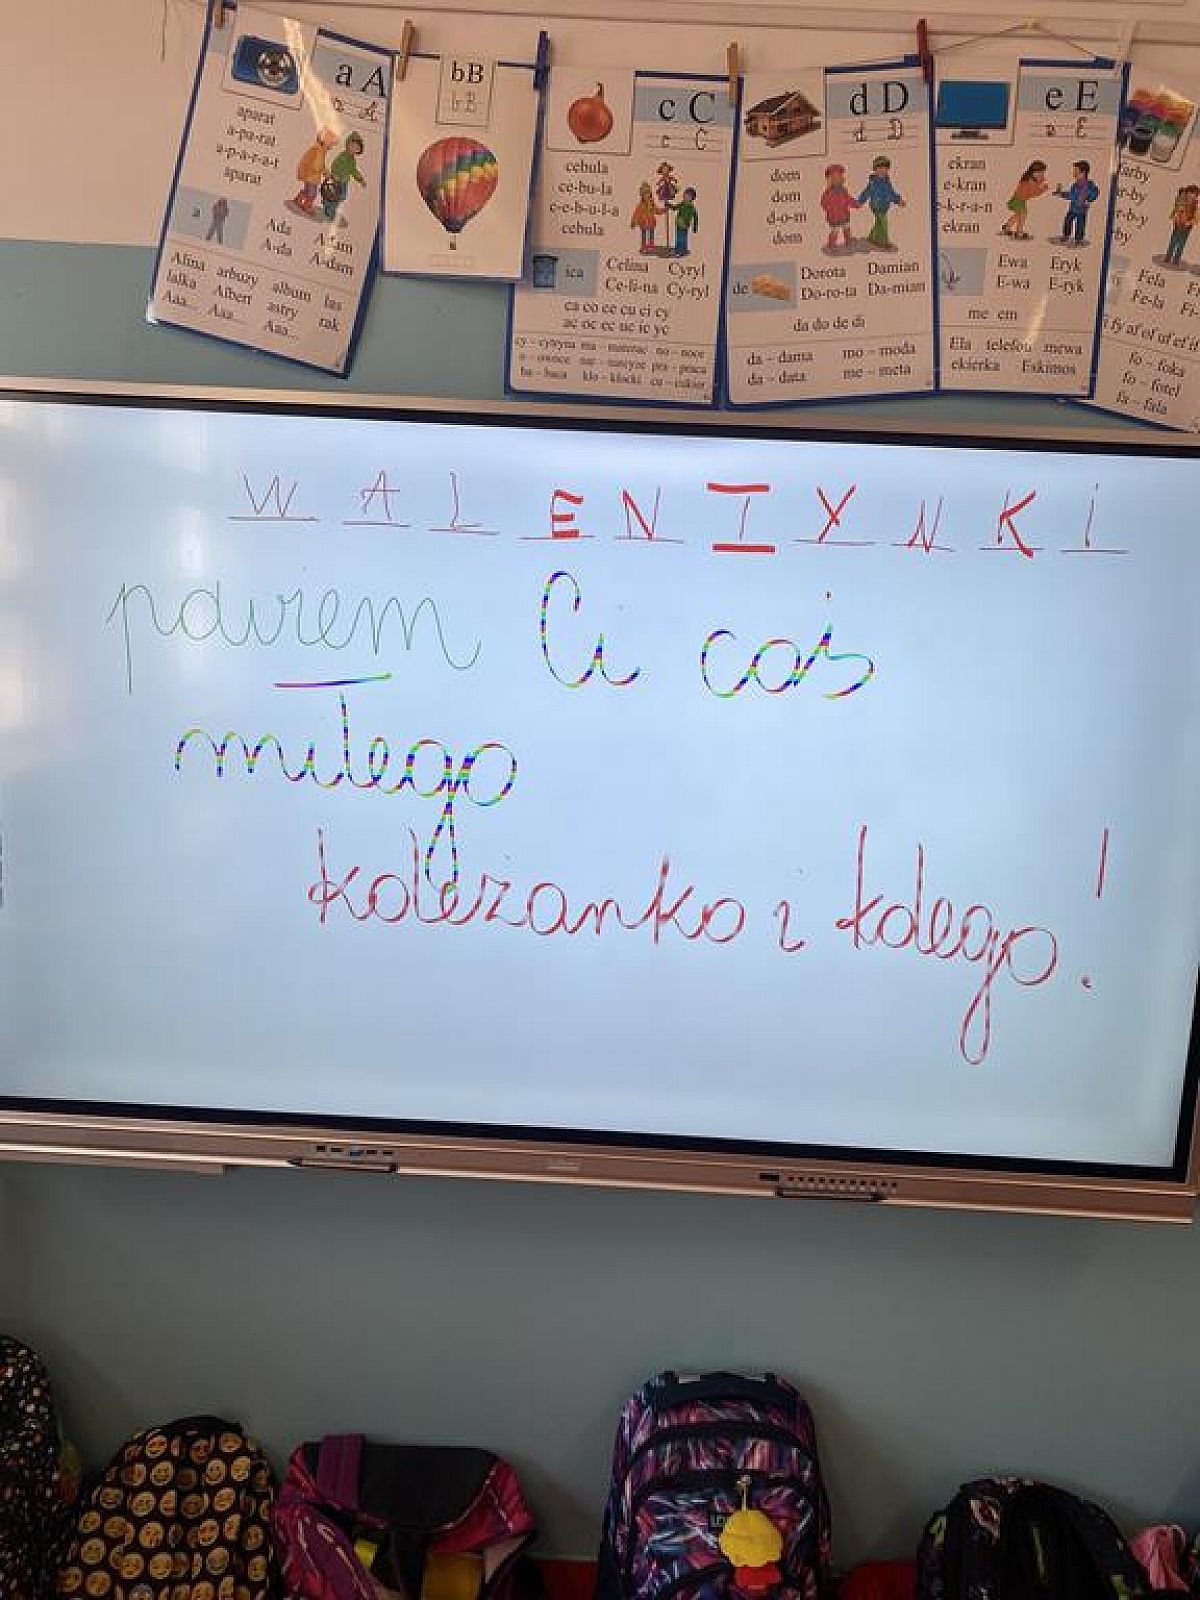 a A
aparat
a-pa-rat
a-p-a-r-a-t
aparat
a
Ada Adam
A-da A-dam
Alina arbuzy album las
lalka Albert astry rak
Aaa... Aaa... Aaa...
bB
bB
c C
c C
cebula
ce-bu-la
c-e-b-u-l-a
cebula
ica
Celina Cyryl
Ce-li-na Cy-ryl
ca co ce cu ci cy
ac oc ec uc ic yc
d D
d D
dom
dom
d-o-m
dom
de
Dorota Damian
Do-ro-ta Da-mian
da do de di
da – dama mo – moda
da – data me – meta
e E
e E
ekran
e-kran
e-k-r-a-n
ekran
Ewa Eryk
E-wa E-ryk
me em
Ela telefon mewa
ekierka Eskimos
farby
Fela
Fe-la
fo – foka
fo – fotel
fa – fala
W A L E N T Y N K I
powiem Ci coś
miłego
koleżanko i kolego!